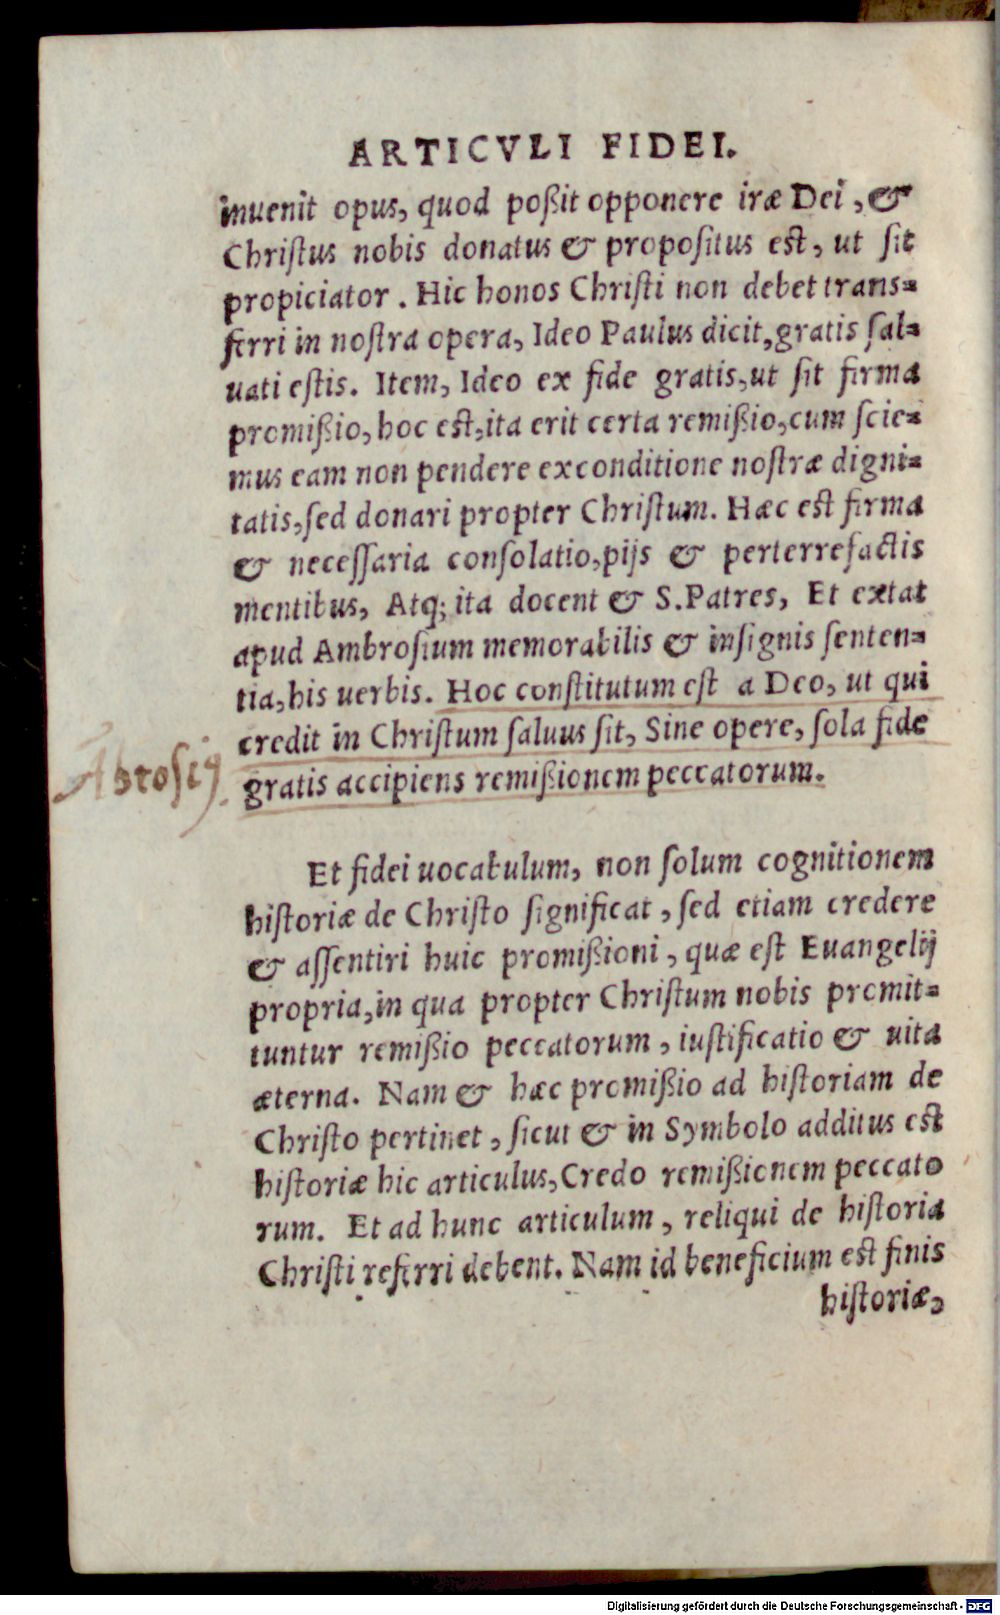 ARTICVLI FIDEI.
inuenit opus, quod poßit opponere iræ Dei, &
Chriſtus nobis donatus & propoſitus eſt, ut ſit
propiciator. Hic honos Chriſti non debet trans=
ferri in noſtra opera, Ideo Paulus dicit, gratis ſal=
uati eſtis. Item, Ideo ex fide gratis, ut ſit firma
promißio, hoc eſt, ita erit certa remißio, cum ſcie=
mus eam non pendere ex conditione noſtræ digni=
tatis, ſed donari propter Chriſtum. Hæc eſt firma
& neceſſaria conſolatio, pijs & perterrefactis
mentibus, Atq; ita docent & S. Patres, Et extat
apud Ambroſium memorabilis & inſignis ſenten=
tia, his uerbis. Hoc conſtitutum eſt a Deo, ut qui
credit in Chriſtum ſaluus ſit, Sine opere, ſola fide
gratis accipiens remißionem peccatorum.
Et fidei uocabulum, non ſolum cognitionem
hiſtoriæ de Chriſto ſignificat, ſed etiam credere
& aſſentiri huic promißioni, quæ eſt Euangelij
propria, in qua propter Chriſtum nobis promit=
tuntur remißio peccatorum, iuſtificatio & uita
æterna. Nam & hæc promißio ad hiſtoriam de
Chriſto pertinet, ſicut & in Symbolo additus eſt
hiſtoriæ hic articulus, Credo remißionem peccato
rum. Et ad hunc articulum, reliqui de hiſtoria
Chriſti referri debent. Nam id beneficium eſt finis
hiſtoriæ,
Digitalisierung gefördert durch die Deutsche Forschungsgemeinschaft - DFG